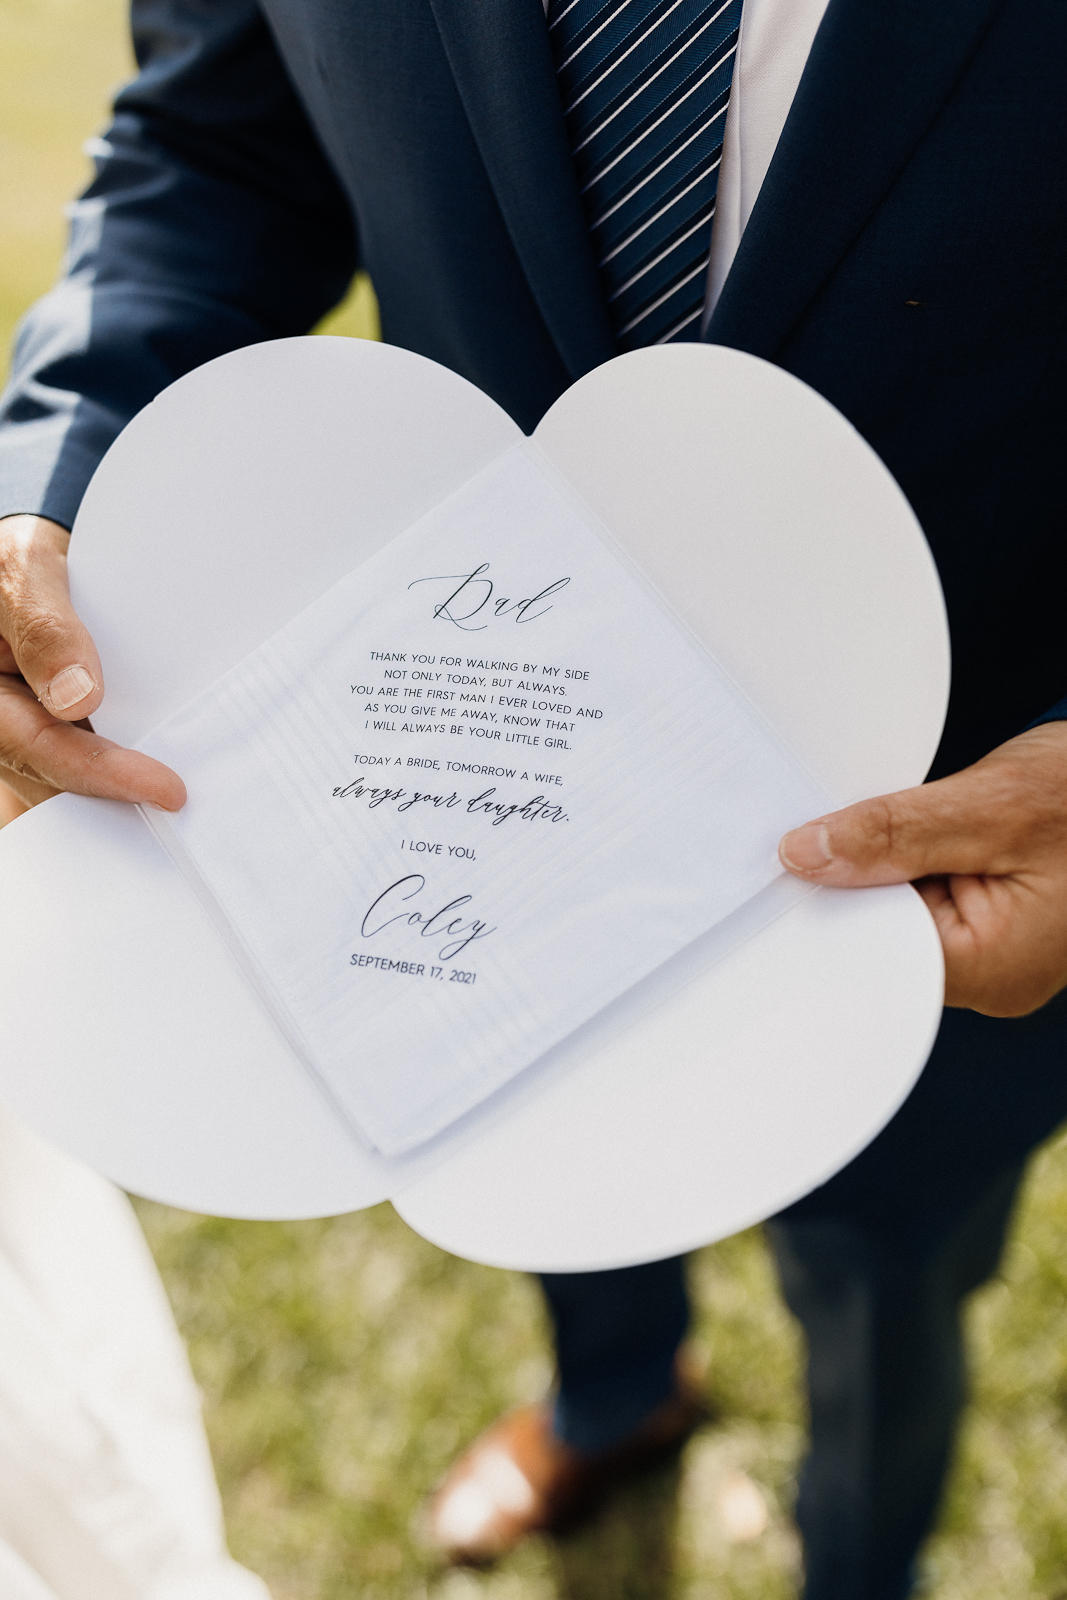 Dad
THANK YOU FOR WALKING BY MY SIDE
NOT ONLY TODAY, BUT ALWAYS.
YOU ARE THE FIRST MAN I EVER LOVED AND
AS YOU GIVE ME AWAY, KNOW THAT
I WILL ALWAYS BE YOUR LITTLE GIRL.
TODAY A BRIDE, TOMORROW A WIFE,
always your daughter.
I LOVE YOU,
Coley
SEPTEMBER 17, 2021